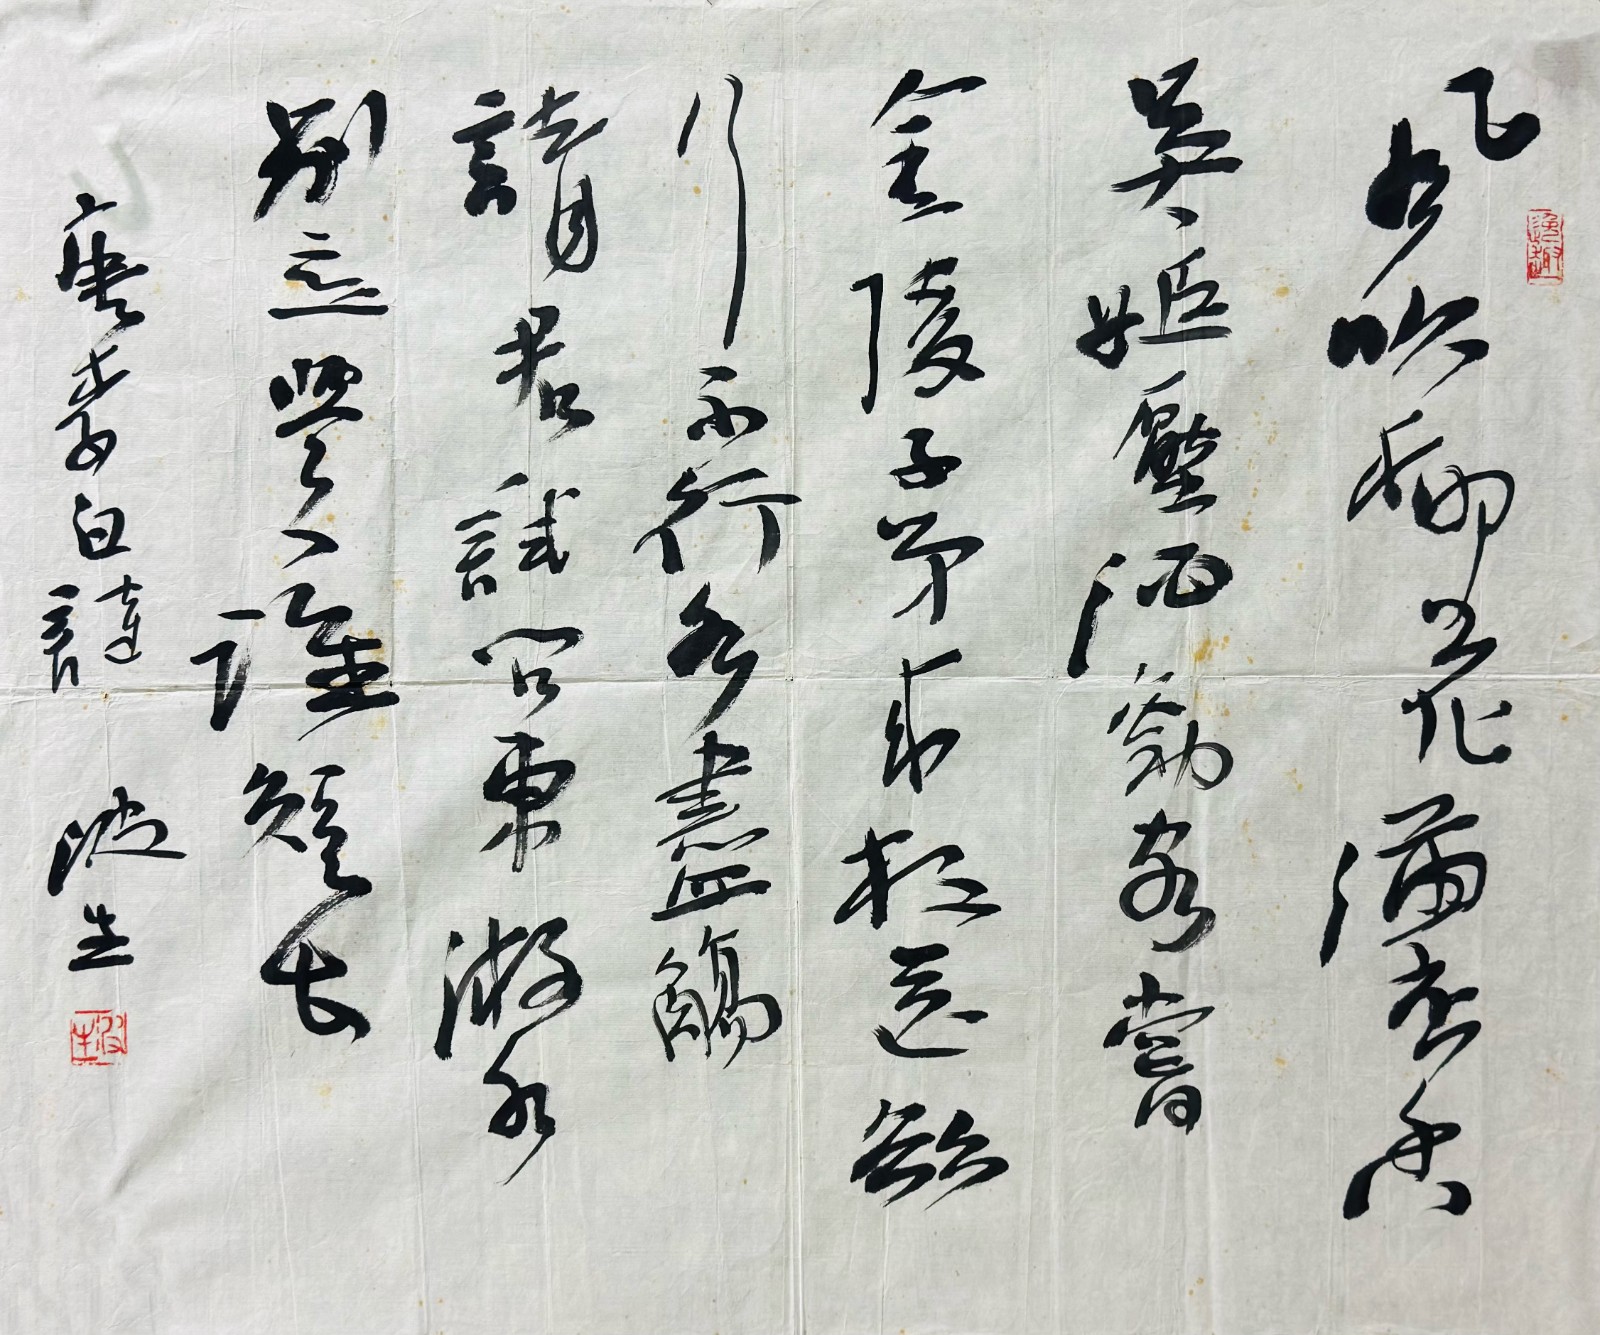 逸趣
風吹柳花滿店香
吳姬壓酒勸客嘗
金陵子弟來相送欲
行不行各盡觴
請君試問東流水
別意與之誰短長
唐李白詩 生